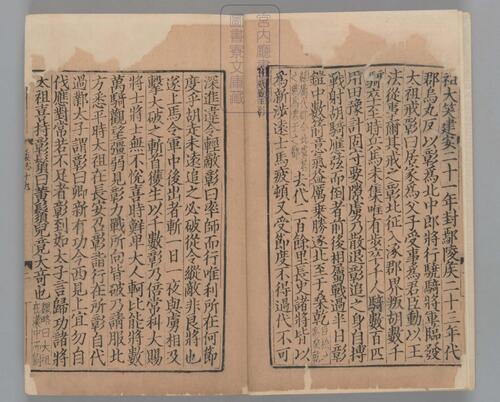 祖大笑建安二十一年封鄢陵侯二十三年代
郡烏丸反以彰為北中郎將行驍騎將軍臨發
太祖戒彰曰居家為父子受事為君臣動以王
法從事爾其戒之彰北征入涿郡界叛胡數千
騎卒至時兵馬未集唯有步卒千人騎數百匹
用田豫計固守要隙虜乃散退彰追之身自搏
戰射胡騎應弦而倒者前後相屬戰過半日彰
鎧中數箭意氣益厲乘勝逐北至于桑乾
去代二百餘里長史諸將皆以
為新涉遠士馬疲頓又受節度不得過代不可
深進違令輕敵彰曰率師而行唯利所在何節
度乎胡走未遠追之必破從令縱敵非良將也
遂上馬令軍中後出者斬一日一夜與虜相及
擊大破之斬首獲生以千數彰乃倍常科大賜
將士將士無不悅喜時鮮卑大人軻比能將數
萬騎觀望彊弱見彰力戰所向皆破乃請服北
方悉平時太祖在長安召彰詣行在所彰自代
過鄴太子謂彰曰卿新有功今西見上宜勿自
伐應對常若不足者彰到如太子言歸功諸將
太祖喜持彰鬚曰黃鬚兒竟大奇也魏略曰太祖在漢中而劉
圖書寮文庫藏